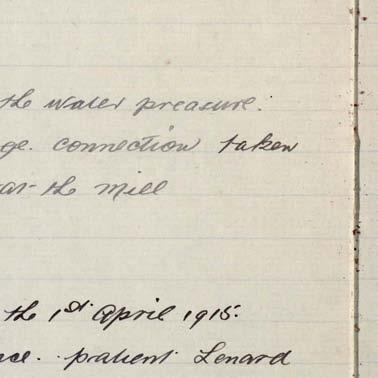 the water preasure.
ge. connection taken
at the mill
the 1st April 1915.
ce. patient Lenard